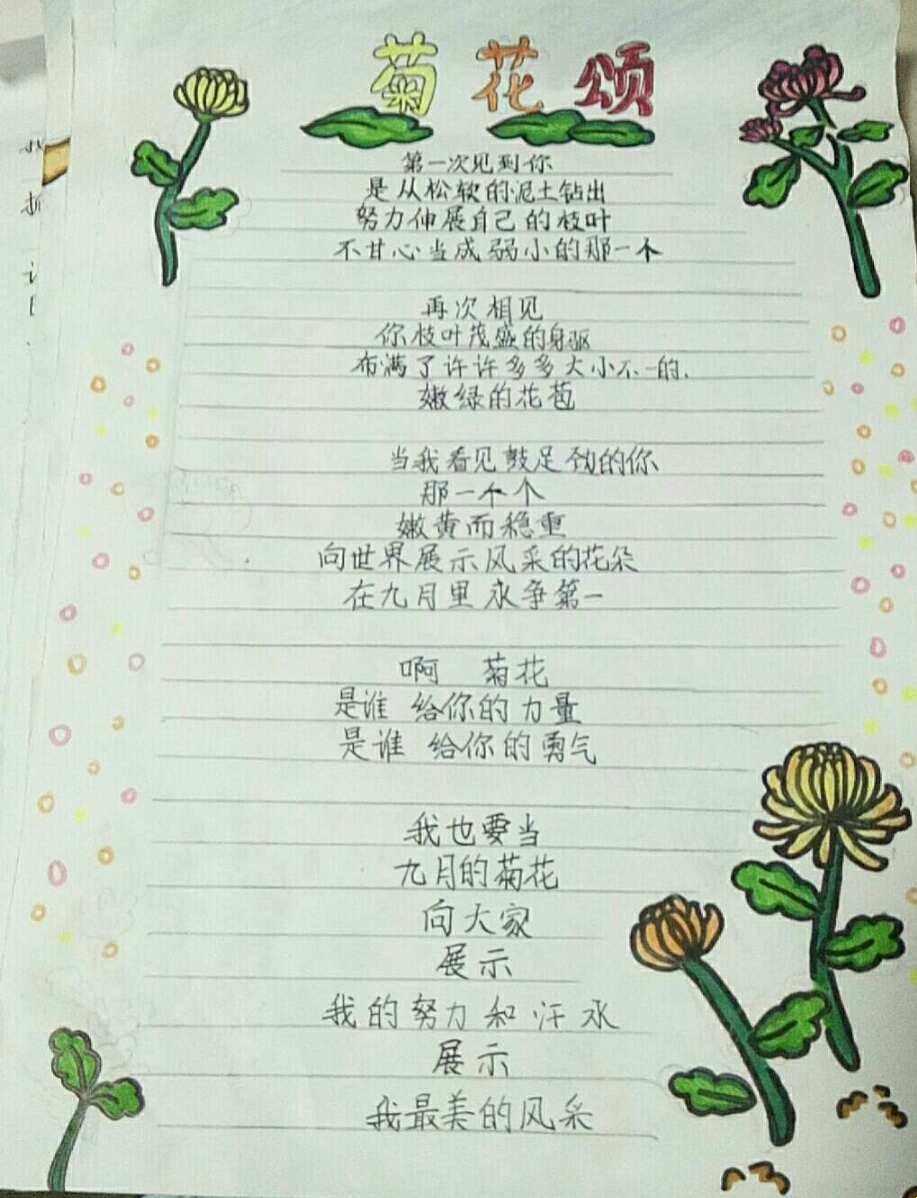 菊花颂
第一次见到你
是从松软的泥土钻出
努力伸展自己的枝叶
不甘心当成弱小的那一个
再次相见
你枝叶茂盛的身驱
布满了许许多多大小不一的.
嫩绿的花苞
当我看见鼓足劲的你
那一个个
嫩黄而稳重
向世界展示风采的花朵
在九月里永争第一
啊 菊花
是谁 给你的力量
是谁 给你的勇气
我也要当
九月的菊花
向大家
展示
我的努力和汗水
展示
我最美的风采